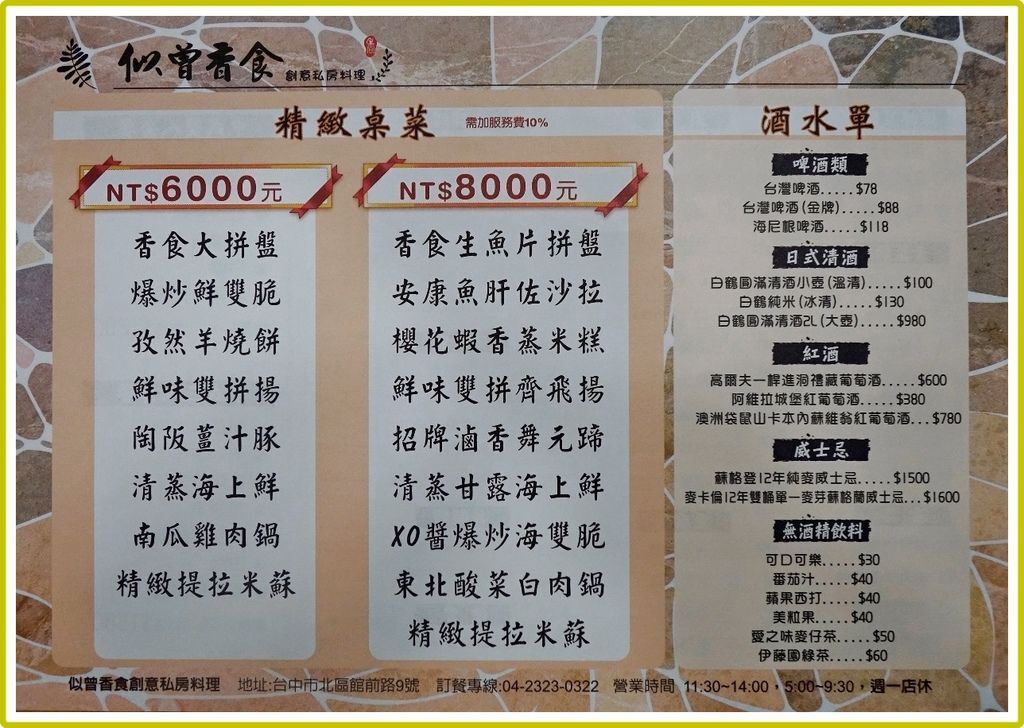 似曾香食 創意私房料理
精緻桌菜 需加服務費10%
NT$6000元
香食大拼盤
爆炒鮮雙脆
孜然羊燒餅
鮮味雙拼揚
陶阪薑汁豚
清蒸海上鮮
南瓜雞肉鍋
精緻提拉米蘇
NT$8000元
香食生魚片拼盤
安康魚肝佐沙拉
櫻花蝦香蒸米糕
鮮味雙拼齊飛揚
招牌滷香舞元蹄
清蒸甘露海上鮮
XO醬爆炒海雙脆
東北酸菜白肉鍋
精緻提拉米蘇
酒水單
啤酒類
台灣啤酒.....$78
台灣啤酒(金牌).....$88
海尼根啤酒.....$118
日式清酒
白鶴圓滿清酒小壺(溫清).....$100
白鶴純米(冰清).....$130
白鶴圓滿清酒2L(大壺).....$980
紅酒
高爾夫一桿進洞禮藏葡萄酒.....$600
阿維拉城堡紅葡萄酒.....$380
澳洲袋鼠山卡本內蘇維翁紅葡萄酒...$780
威士忌
蘇格登12年純麥威士忌.....$1500
麥卡倫12年雙桶單一麥芽蘇格蘭威士忌...$1600
無酒精飲料
可口可樂.....$30
番茄汁.....$40
蘋果西打.....$40
美粒果.....$40
愛之味麥仔茶.....$50
伊藤園綠茶.....$60
似曾香食創意私房料理 地址:台中市北區館前路9號 訂餐專線:04-2323-0322 營業時間 11:30~14:00，5:00~9:30，週一店休